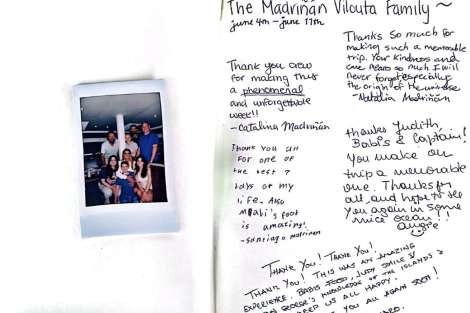 The Madriñan Vilouta Family ~
june 4th - june 11th
Thank you crew
for making this
a phenomenal
and unforgettable
week!!
- Catalina Madriñán
Thanks so much for
making such a memorable
trip. Your kindness and
care so much I will
never forget especially
the origin of the universe
- Natalia Madriñán
Thank you all
for one of
the best 7
days of my
life. Also
Babi's foot
is amazing!
- Santiago Madriñan
thanks Judith,
Babis & Captain!
You make our
trip a memorable
one. Thanks for
all, and hope to see
you again in some
nice ocean!!
Angie
Thank you! Thank you!
Thank you! This was an amazing
experience. Babis food, Judy smile &
George's knowledge of the islands
keep us all happy.
you all again soon!